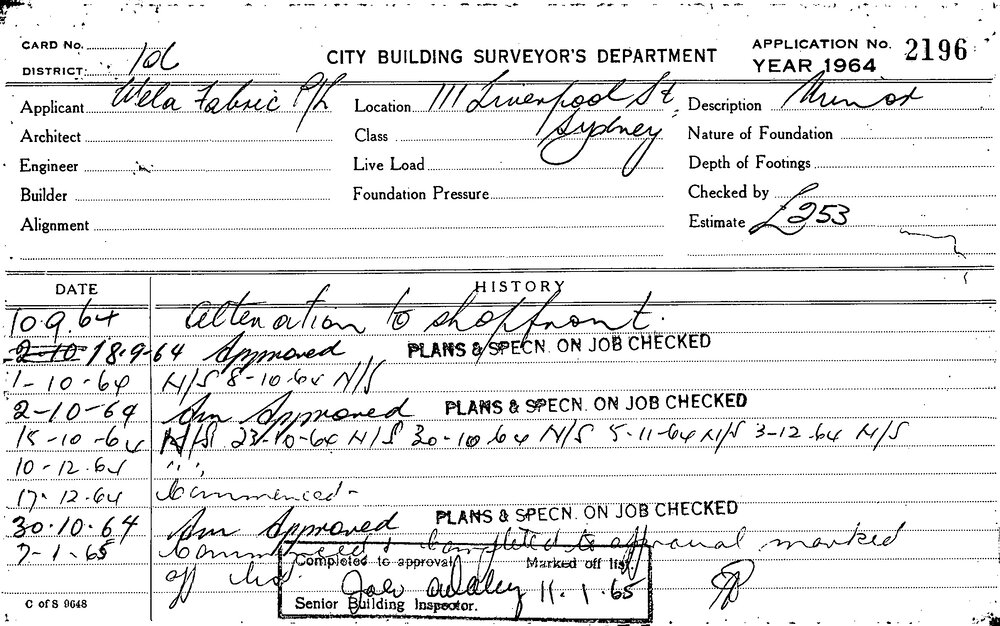 CARD No.
DISTRICT: CITY BUILDING SURVEYOR'S DEPARTMENT APPLICATION No. 2196
YEAR 1964
Applicant Wela Fabric P/L Location 111 Liverpool St, Sydney Description Minor
Architect Class Nature of Foundation
Engineer Live Load Depth of Footings
Builder Foundation Pressure Checked by
Alignment Estimate £253
DATE HISTORY
10.9.64 alteration to shopfront.
2-10 18.9-64 Approved PLANS & SPECN. ON JOB CHECKED
1-10-64 N/S 8-10-64 N/S
2-10-64 Am Approved PLANS & SPECN. ON JOB CHECKED
15-10-64 N/S 23-10-64 N/S 30-10-64 N/S 5-11-64 N/S 3-12-64 N/S
10-12.64 " "
17.12.64 Commenced-
30.10.64 Am Approved PLANS & SPECN. ON JOB CHECKED
7-1.65 Commenced & Completed to approval marked
off list.
Completed to approval Marked off list.
11.1.65
Senior Building Inspector.
C of S 9648